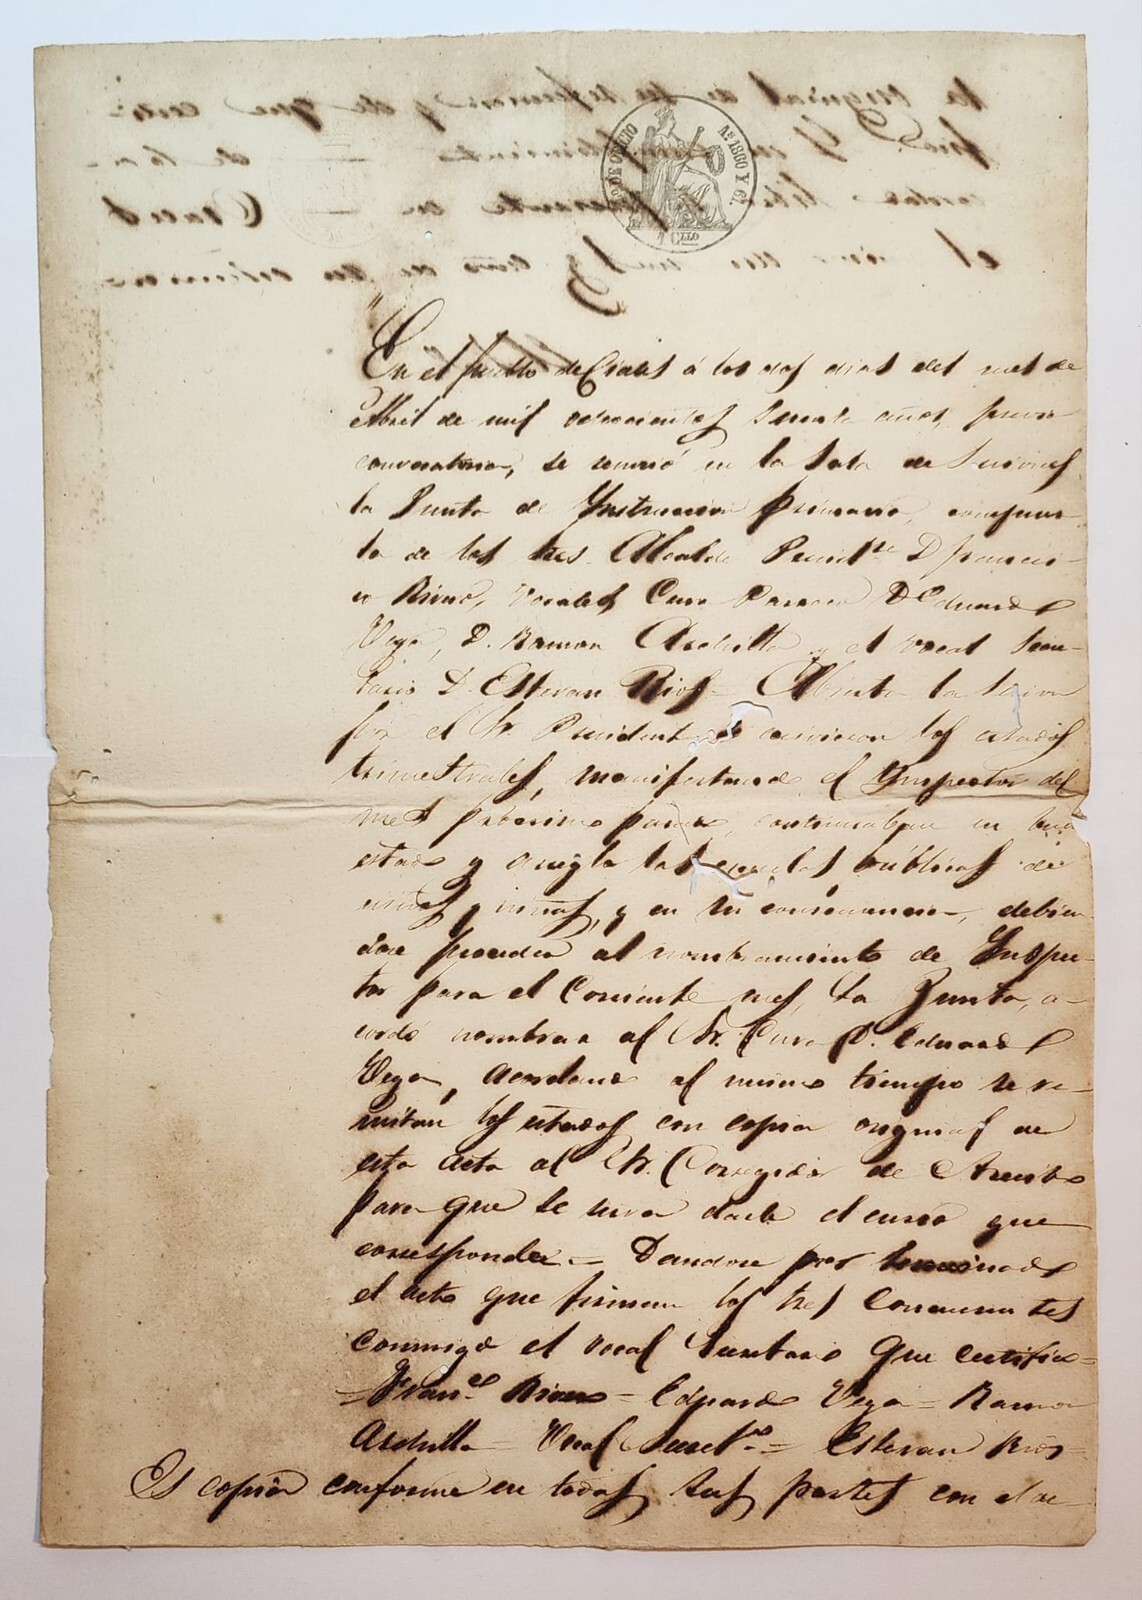 Sº DE OFICIO Aˢ 1860 Y 61.
¼ Cllo
En el pueblo de Ciales á los dos dias del mes de
Abril de mil ochocientos sesenta años, previa
convocatoria, se reunió en la Sala de Sesiones
la Junta de Instruccion primaria, compues-
ta de los Sres. Alcalde Presidte D Francis-
co Rivas, vocales Cura Parroco D Eduardo
Vega, D. Ramon Archilla y el vocal Secre-
tario D. Estevan Rios = Abierta la Sesion
por el Sr. Presidente se los estados
trimestrales, manifestando el Inspector del
mes procsimo pasado, continuaban en buen
estado y arreglo las escuelas públicas de
niños y niñas, y en su consecuencia, debien-
dose proceder al nombramiento de Inspec-
tor para el corriente mes, la Junta, a-
cordó nombrar al Sr. Cura D. Eduardo
Vega, acordando al mismo tiempo se re-
mitan los estados con copia original de
esta acta al Sr. Corregidor de Arecibo
para que se sirva darle el curso que
corresponda = Dandose por terminado
el acto que firman los Sres Concurrentes
conmigo el vocal Secretario que certifico =
= Franco Rivas = Eduardo Vega = Ramon
Archilla = Vocal Secretº = Estevan Rios =
Es copia conforme en todas sus partes con el ac-